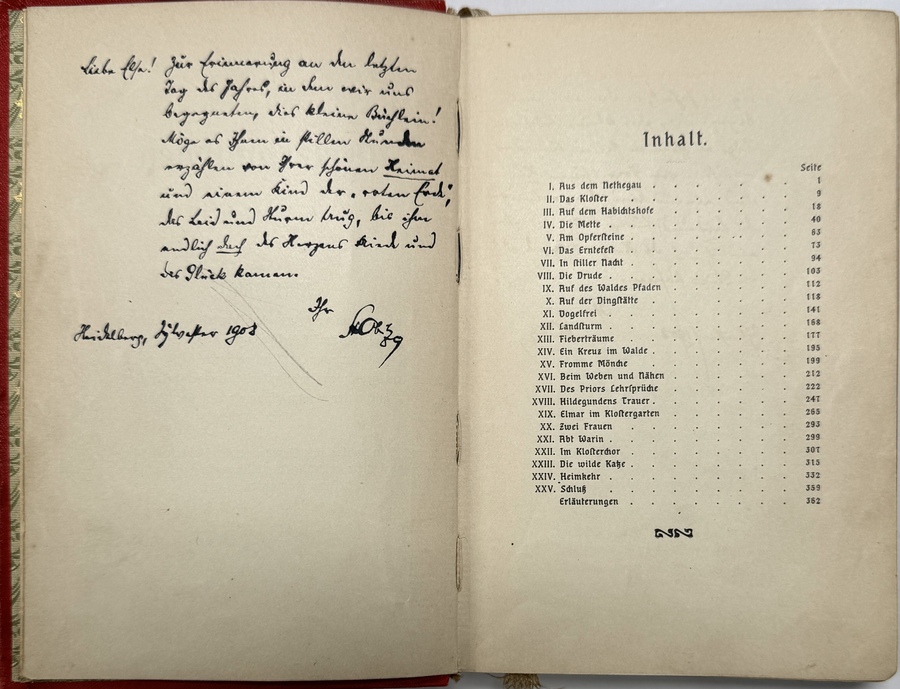 Liebe Else! Zur Erinnerung an den letzten
Tag des Jahres, in dem wir uns
begegneten, dies kleine Büchlein!
Möge es Ihnen in stillen Stunden
erzählen von Ihrer schönen Heimat
und einem Kind der „roten Erde“,
das Leid und Sturm trug, bis ihm
endlich doch des Herzens Friede und
das Glück kamen.
Ihr
Heidelberg, Sylvester 1908
Inhalt.
Seite
I. Aus dem Nethegau . . . . . . . 1
II. Das Kloster . . . . . . . 9
III. Auf dem Habichtshofe . . . . . . 18
IV. Die Mette . . . . . . . 40
V. Am Opfersteine . . . . . . . 63
VI. Das Erntefest . . . . . . . 73
VII. In stiller Nacht . . . . . . . 94
VIII. Die Drude . . . . . . . 103
IX. Auf des Waldes Pfaden . . . . . . 112
X. Auf der Dingstätte . . . . . . 118
XI. Vogelfrei . . . . . . . 141
XII. Landsturm . . . . . . . 168
XIII. Fieberträume . . . . . . . 177
XIV. Ein Kreuz im Walde . . . . . . 195
XV. Fromme Mönche . . . . . . 199
XVI. Beim Weben und Nähen . . . . . 212
XVII. Des Priors Lehrsprüche . . . . . 222
XVIII. Hildegundens Trauer . . . . . . 247
XIX. Elmar im Klostergarten . . . . . 265
XX. Zwei Frauen . . . . . . . 293
XXI. Abt Warin . . . . . . . 299
XXII. Im Klosterchor . . . . . . 307
XXIII. Die wilde Katze . . . . . . . 315
XXIV. Heimkehr . . . . . . . 332
XXV. Schluß . . . . . . . 359
Erläuterungen . . . . . . 362